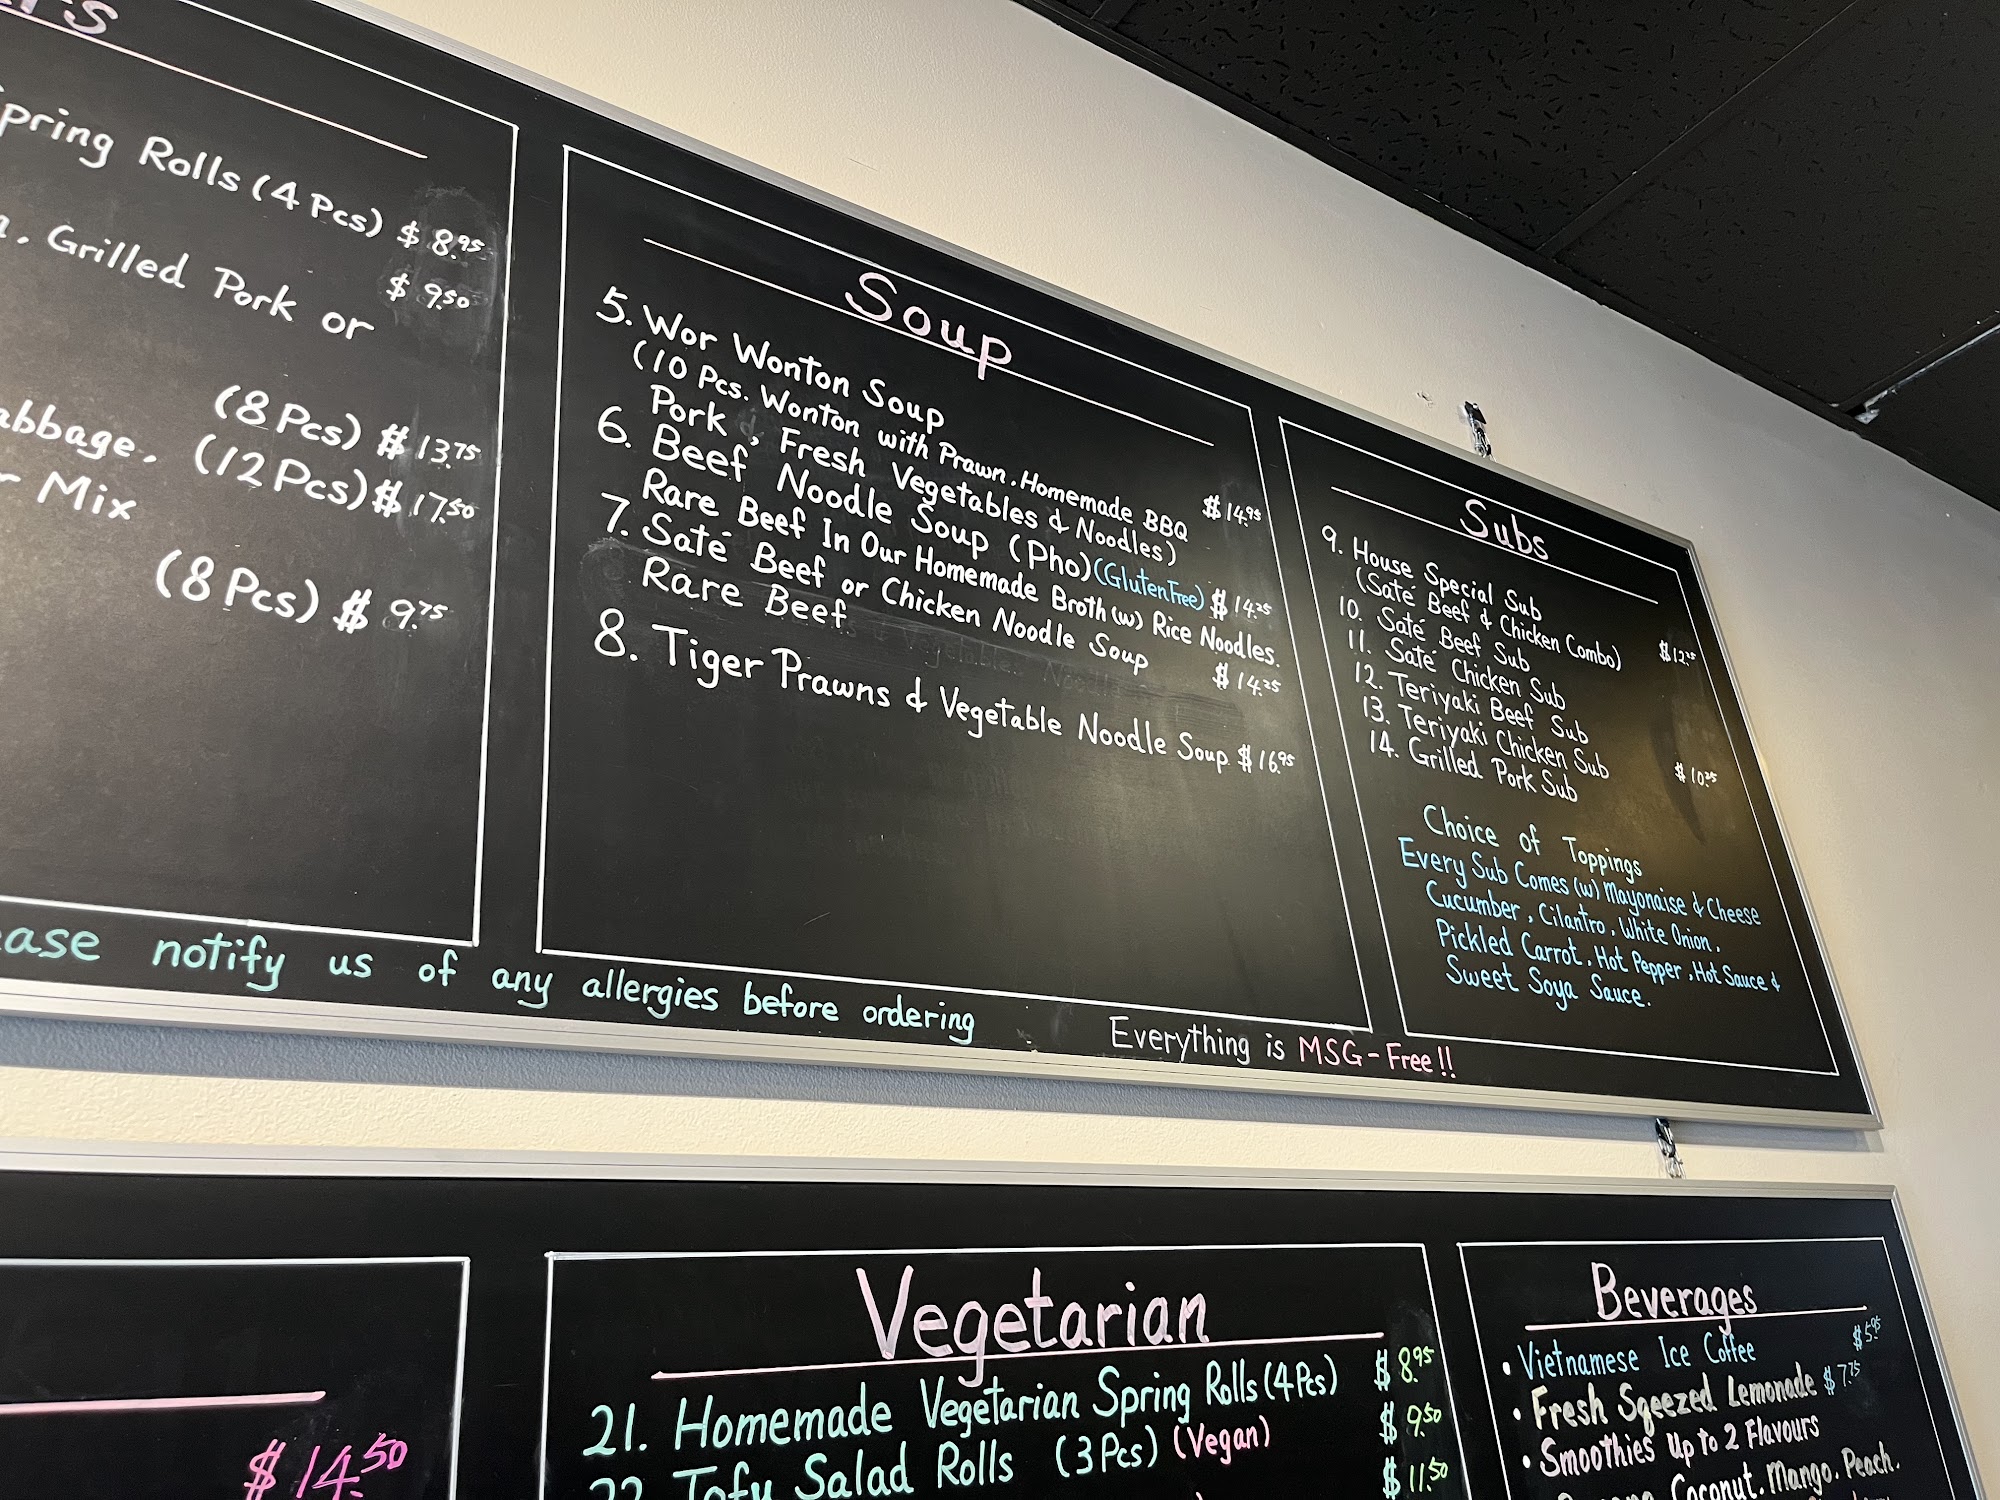 Spring Rolls (4 Pcs) $8.95
$9.50
Grilled Pork or
(8 Pcs) $13.75
(12 Pcs) $17.50
Mix
(8 Pcs) $9.75
Soup
5. Wor Wonton Soup $14.95
(10 Pcs. Wonton with Prawn. Homemade BBQ
Pork, Fresh Vegetables & Noodles)
6. Beef Noodle Soup (Pho) (Gluten Free) $14.25
Rare Beef In Our Homemade Broth (w) Rice Noodles.
7. Saté Beef or Chicken Noodle Soup $14.25
Rare Beef
8. Tiger Prawns & Vegetable Noodle Soup $16.95
Subs
9. House Special Sub
(Saté Beef & Chicken Combo) $12.25
10. Saté Beef Sub
11. Saté Chicken Sub
12. Teriyaki Beef Sub
13. Teriyaki Chicken Sub
14. Grilled Pork Sub $10.25
Choice of Toppings
Every Sub Comes (w) Mayonaise & Cheese
Cucumber, Cilantro, White Onion,
Pickled Carrot, Hot Pepper, Hot Sauce &
Sweet Soya Sauce.
notify us of any allergies before ordering
Everything is MSG-Free!!
$14.50
Vegetarian
21. Homemade Vegetarian Spring Rolls (4 Pcs) $8.95
22. Tofu Salad Rolls (3 Pcs) (Vegan) $9.50
$11.50
Beverages
• Vietnamese Ice Coffee $5.95
• Fresh Sqeezed Lemonade $7.75
• Smoothies Up to 2 Flavours
Coconut. Mango. Peach.